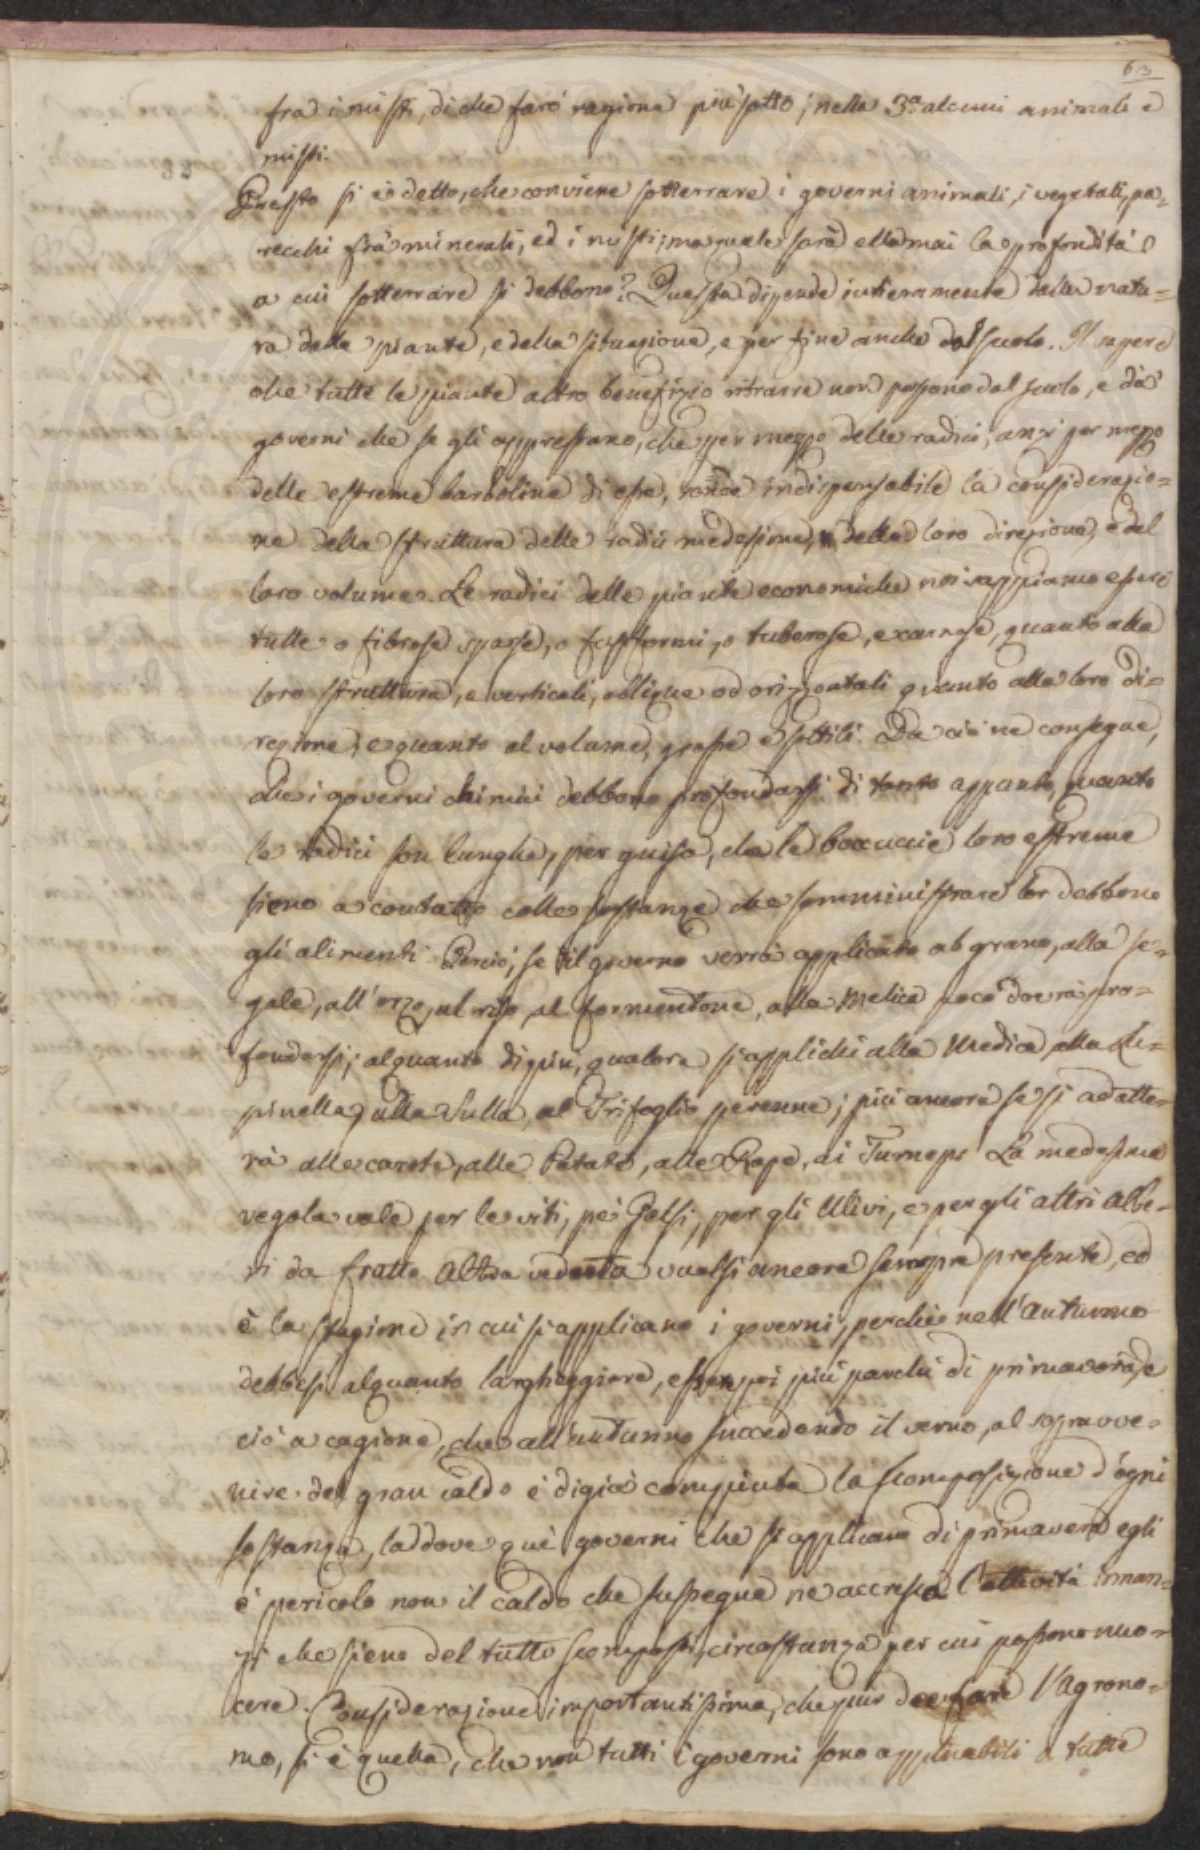 63
fra i misti, di che farò ragione più sotto; nella 3.a alcuni animali e
misti.
Presto si è detto, che conviene sotterrare i governi animali, i vegetali, pa-
recchi frà minerali, ed i misti; ma quale sarà ella mai la profondità
a cui sotterrare si debbono? Questa dipende intieramente dalla natu-
ra delle piante, e della situazione, e per fine anche dal suolo. Il sapere
che tutte le piante altro benefizio ritrarre non possono dal suolo, e dà
governi che se gli apprestano, che per mezzo delle radici, anzi per mezzo
delle estreme barboline di esse, rende indispensabile la considerazio-
ne della struttura delle radici medesime, della loro direzione, e del
loro volume. Le radici delle piante economiche noi sappiamo essere
tutte o fibrose sparse, o fusiformi, o tuberose, e carnose, quanto alla
loro struttura, e verticali, oblique od orizzontali quanto alla loro di-
rezione; e quanto al volume, grosse e sottili. Da ciò ne consegue,
che i governi chimici debbono profondarsi di tanto appunto, quanto
le radici son lunghe, per guisa, che le boccuccie loro estreme
sieno a contatto colle sostanze che somministrare lor debbono
gli alimenti. Perciò, se il governo verrà applicato al grano, alla se-
gale, all'orzo, al riso, al formentone, alla Melica poco dovrà pro-
fondarsi; alquanto di più, qualora si applichi alla Medica, alla Lu-
pinella, alla Sulla, al Trifoglio perenne; più ancora se si adatte-
rà alle carote, alle Patate, alle Rape, ai Turneps. La medesima
regola vale per le viti, pei Gelsi, per gli Ulivi, e per gli altri Albe-
ri da frutto. Altra veduta vuolsi ancora sempre presente, ed
è la stagione in cui si applicano i governi, perchè nell'Autunno
debbesi alquanto largheggiare, esser poi più parchi di primavera, e
ciò a cagione, che all'autunno succedendo il verno, al sopravve-
nire del gran caldo è digià compiuta la scomposizione d'ogni
sostanza, laddove què governi che si applicano di primavera egli
è pericolo non il caldo che sussegue ne accresca l'attività innan-
zi che sieno del tutto scomposti, circostanza per cui possono nuo-
cere. Considerazione importantissima, che pur dee fare l'Agrono-
mo, si è quella, che non tutti i governi sono applicabili a tutte